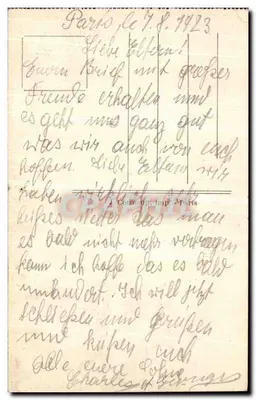 Paris, le 7.8.1923
Liebe Eltern!
Euren Brief mit großer
Freude erhalten und
es geht uns ganz gut
was wir auch von euch
hoffen. Liebe Eltern wir
haben
heißes Wetter das man
es bald nicht mehr vertragen
kann ich hoffe das es bald
umändert. Ich will jetzt
schließen und grüßen
und küßen euch
alle eure Söhne
Charles